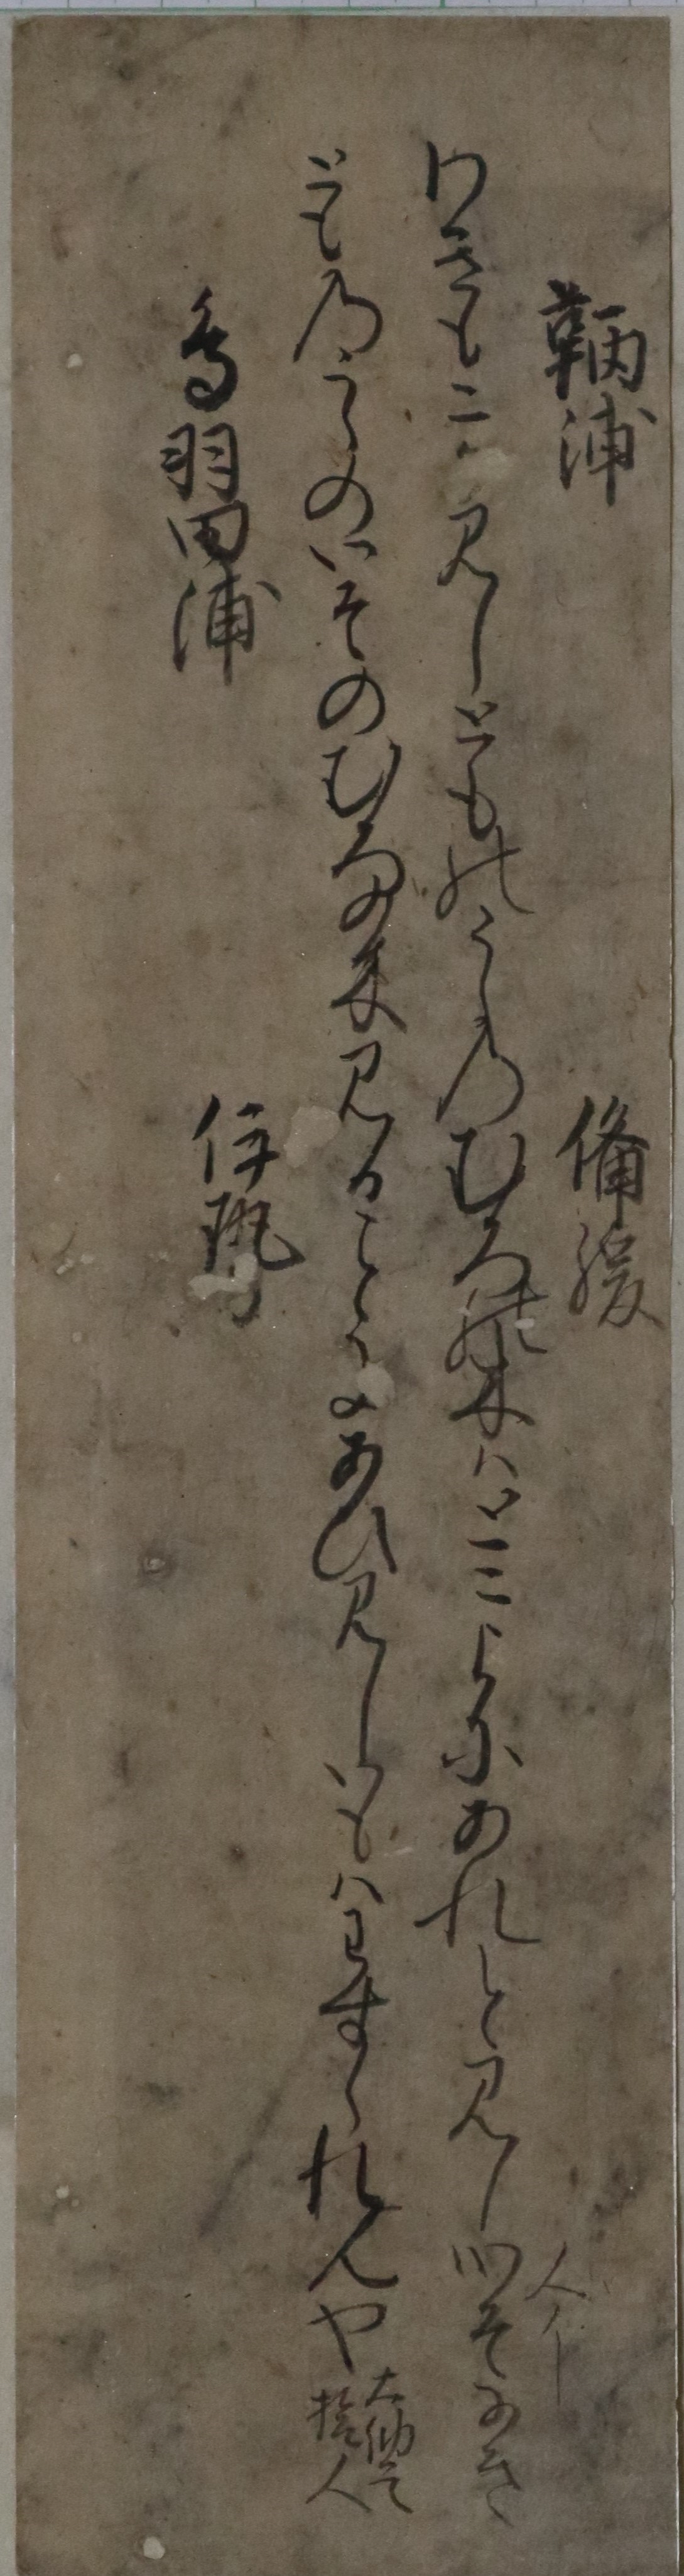 鞆浦　備後
わきもこか見しとものうらのむろの木はとこよにあれと見しそなき
人イ
とものうらのいそのむろの木見ることにあひ見しいもはわすられんや
大納言
旅人
鳥羽田浦　伊勢